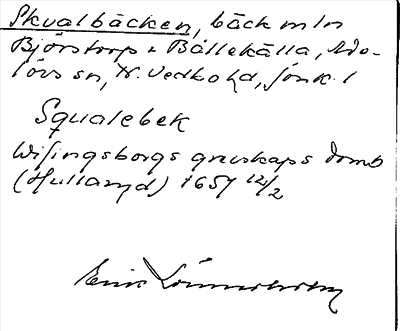 Skvalbäcken, bäck mln
Björstorp & Bällekälla, Ado-
lövs sn, N. Vedbo hd, Jönk. l
Squalebek
Wisingsborgs grevskaps domb
(Hullaryd) 1651 12/2